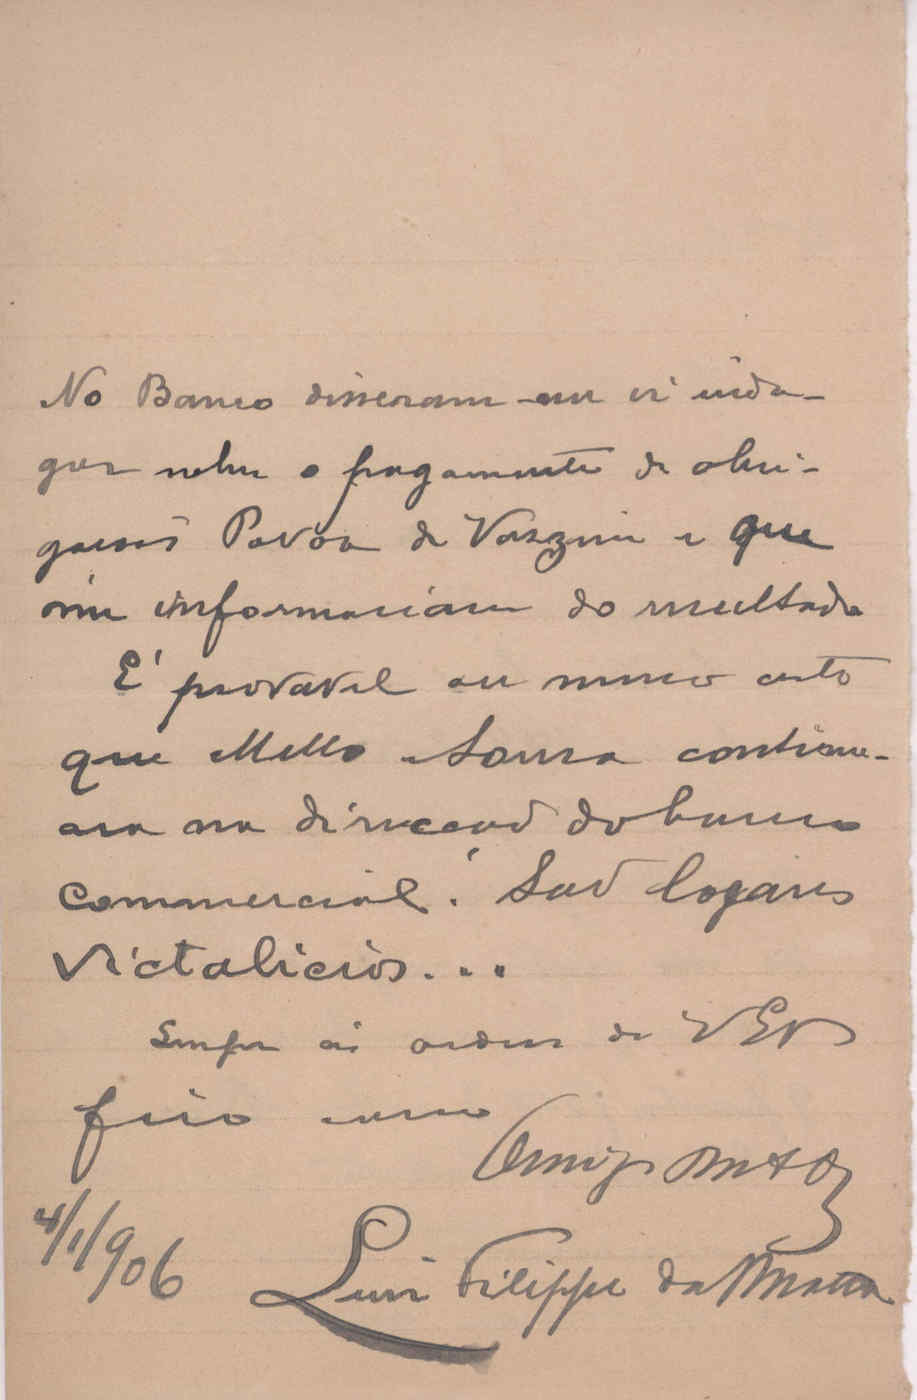 No Banco disseram-me ir inda-
gar sobre o pagamento de obri-
gações Povoa de Varzim e que
me informariam do resultado
É provavel ou mesmo certo
que Mello Souza continu-
ara na direcção do banco
commercial. São logares
victalicios...
Sempre ás ordens de V Exª
fico como
Amigo mto
4/1/906 Luiz Filippe da Matta